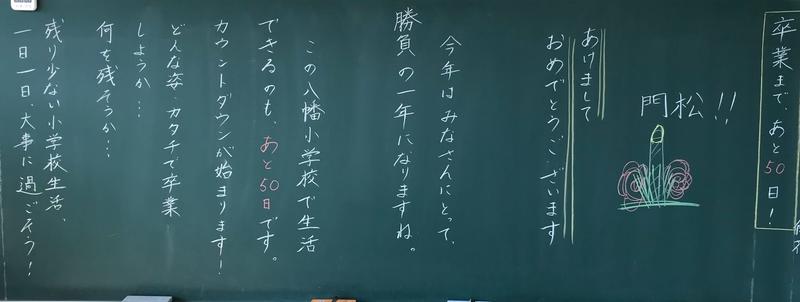 卒業まで、あと50日!
門松!!
あけまして
おめでとうございます
今年はみなさんにとって、
勝負の一年になりますね。
この八幡小学校で生活
できるのも、あと50日です。
カウントダウンが始まります!
どんな姿・カタチで卒業
しようか…
何を残そうか…
残り少ない小学校生活、
一日一日、大事に過ごそう!